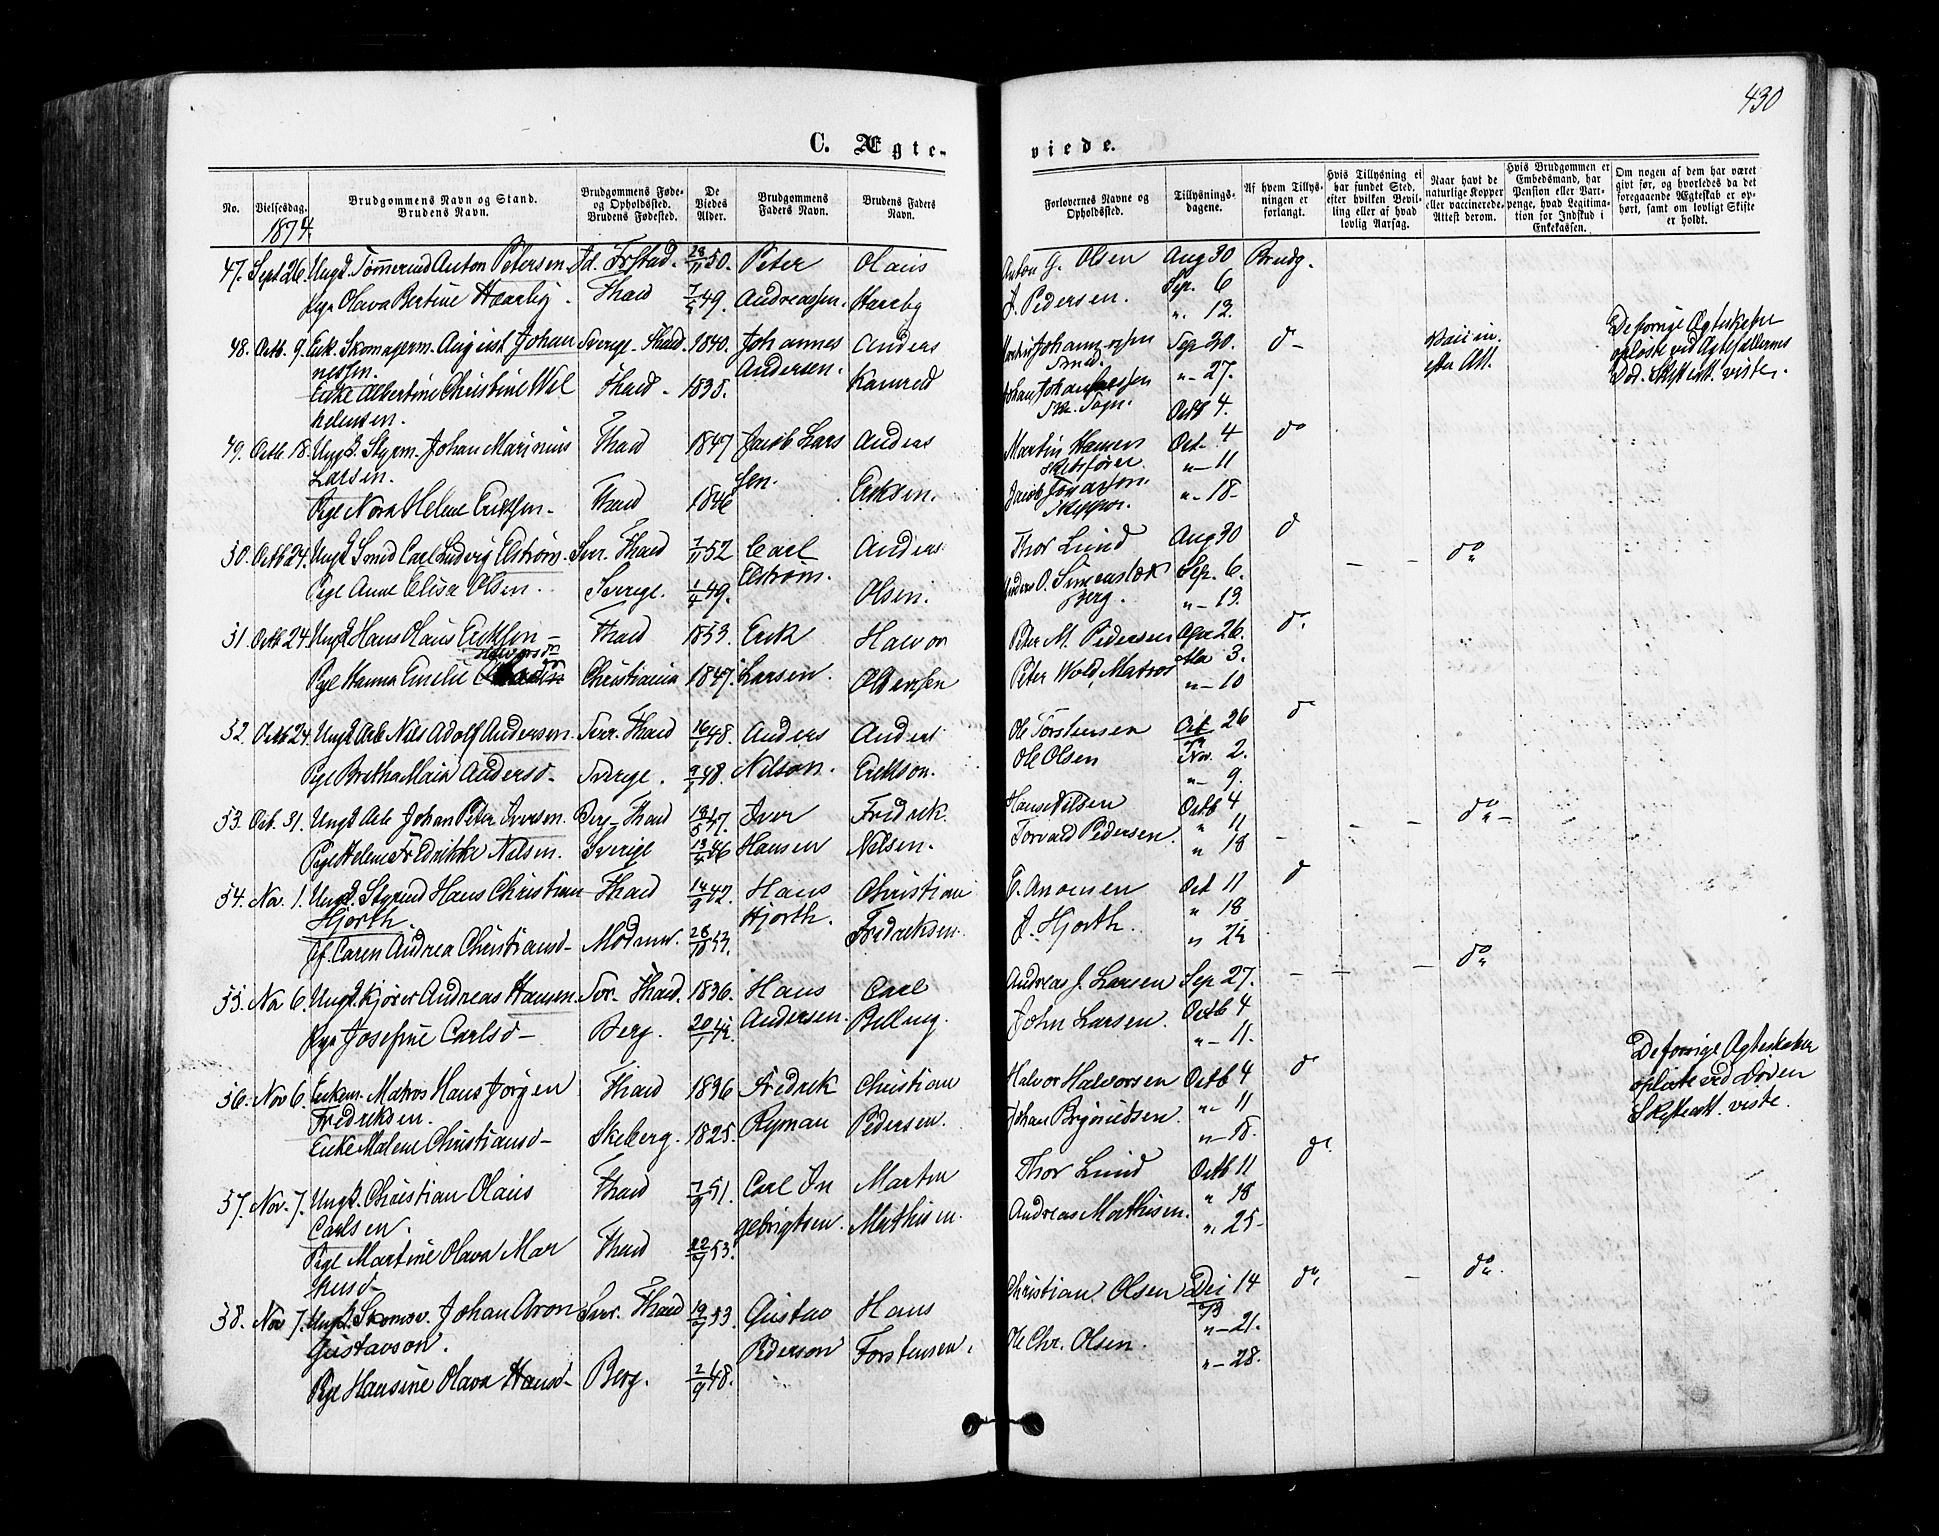 430
C. Ægte-
viede.
No.
Vielsesdag.
Brudgommens Navn og Stand.
Brudens Navn.
Brudgommens Føde-
og Opholdssted.
Brudens Fødested.
De
Viedes
Alder.
Brudgommens
Faders Navn.
Brudens Faders
Navn.
Forlovernes Navne og
Opholdssted.
Tillysnings-
dagene.
Af hvem Tillys-
ningen er
forlangt.
Hvis Tillysning ei
har fundet Sted,
efter hvilken Bevil-
ling eller af hvad
lovlig Aarsag.
Naar havt de
naturlige Kopper
eller vaccinerede.
Attest derom.
Hvis Brudgommen er
Embedsmand, har
Pension eller Var-
penge, hvad Legitima-
tion for Indskud i
Enkekassen.
Om nogen af dem har været
givt før, og hvorledes da det
foregaaende Ægteskab er op-
hørt, samt om lovligt Skifte
er holdt.
1874.
47. Sept 26. Ungk. Tømmermd Anton Petersen. Fr.stad. 50. Peter Olaus Anton G. Olsen Aug 30 Brudg.
Pige Olava Bertine Haarby. Fhald 49. Andreassen. Haarby J. Pedersen. Sep. 6
" 13.
48. Octb. 9. Enk. Skomagerm. August Johan Sverige - Fhald. 1840. Johannes Anders Johannessen Sep 20. do Vaccin. De forrige Ægteskaber
nessen. Andersen. Smed. efter Att. opløste ved Ægtefællernes
Enke Albertine Christine Wil Fhald. 1835. Konrad Johan Johannessen " 27. Død. Skifteatt. viste.
helmsen. Octb 4.
49. Octb. 18. Ungk. Styrm. Johan Marinius Fhald 1847 Jacob Lars Anders Martin Hansen Oct. 4 do
Larsen. sen. Skibsfører " 11
Pige Nora Helene Eriksen. Fhald 1846 Eriksen. Jacob " 18
Skipper.
50. Octb 24. Ungk. Smed Carl Ludvig Elström. Sver. Fhald 7/11 52 Carl Anders Thor Lund Aug 30 do
Pige Anne Elisa Olsen. Sverige. 1/4 49. Elström. Olsen. Anders O. Sep. 6. — — do
Berg. " 13.
51. Octb 24. Ungk Hans Olaus Eriksen Fhald 1853. Erik Halvor Peter M. Pedersen Apr 26. do
Halvorsd
Pige Hanna Emilie Christiania 1847. Larsen. Peter Wold, Matros Ma 3.
" 10
52. Octb 24. Ungk Arb Nils Adolf Andersen. Sver. Fhald 16/1 48. Anders Anders Ole Torstensen Oct 26 do
73
Pige Bretha Maia Andersd. Sverige. 48. Nilson. Erikson. Ole Olsen Nov. 2.
" 9.
53. Oct. 31. Ungk Arb Johan Peter Iversen. Berg Fhald 47. Iver Fredrik Hans Nilsen Octb 4
Pige Helene Fredrikke Nilsen. Sverige 46 Hansen Nilsen. Torvald Pedersen. " 11 — — — do
" 18
54. Nov. 1. Ungk. Styrmd Hans Christian Fhald 14/9 42. Hans Christian Oct 11 do
Hjorth. Hjorth. " 18
Jf. Caren Andrea Christiansd 28/10 Fredriksen. J. Hjorth. " 25
55. Nov 6. Ungk. Kjører Andreas Hansen. Sver. Fhald. 1836. Hans Carl Andreas J. Larsen Sep 27. — — — do
Pige Josefine Carlsd Berg. Andersen. John Larsen. Octb 4
" 11.
56. Nov 6. Enkem. Matros Hans Jørgen Fhald 1836 Fredrik Christian Halvor Halvorsen Octb 4 do De forrige Ægteskaber
Fredriksen. opløste ved Døden
Enke Malene Christiansd Skeberg. 1825. Ryman Pedersen. Johan " 11 Skifteatt. viste.
" 18.
57. Nov. 7. Ungk. Christian Olaus Fhald 7/9 51. Carl In Martin Thor Lund Octb 11 do
Carlsen. gebrigtsen. Mathisen. Andreas Mathisen. " 18
Pige Martine Olava Mar Fhald 53. " 25
58. Nov 7. Ungk. Skomsv. Johan Aron Sver. Fhald 53. Gustav Hans Christian Olsen Dei 14 do — do
Gustavson. 73
" 21.
Pederson Torstensen. Ole Chr. Olsen. " 28.
Pige Hansine Olava Hansd Berg. 2/9 48.